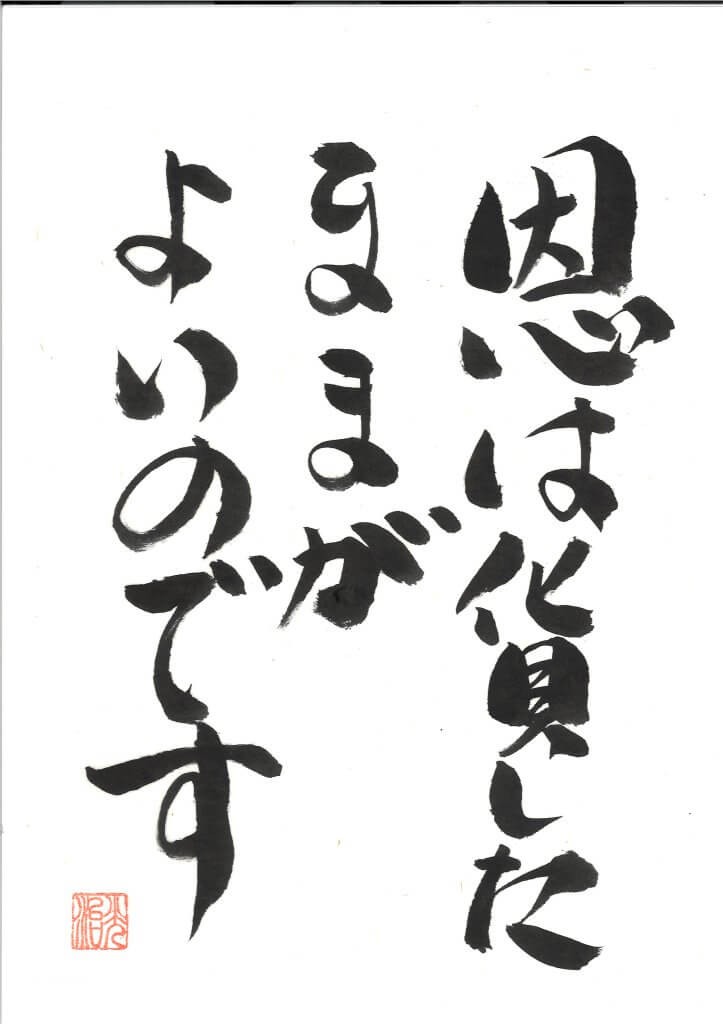 恩は貨した
ままが
よいのです